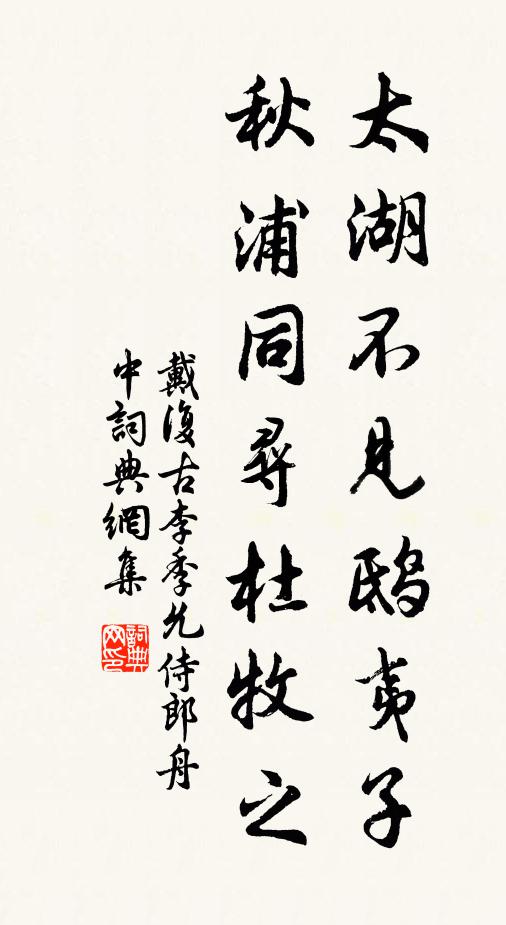 太湖不見鴟夷子
秋浦同尋杜牧之
戴復古李季允侍郎舟
中詞典網集
詞典
网印